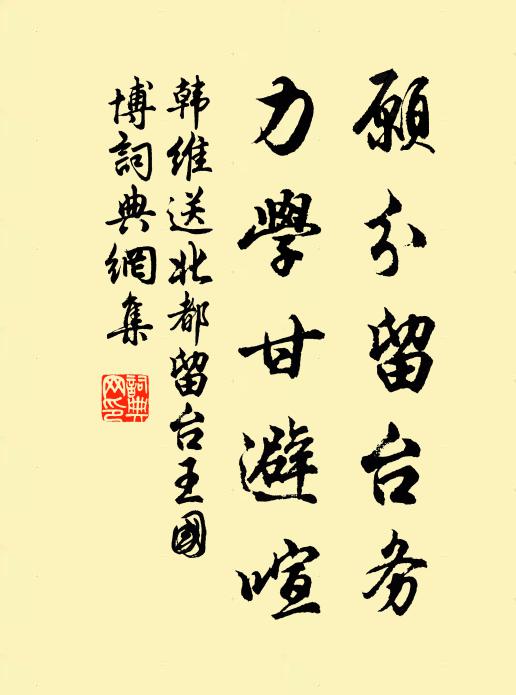 願分留台务
力學甘避喧
韩維送北都留台王國
博詞典網集
詞典
网印